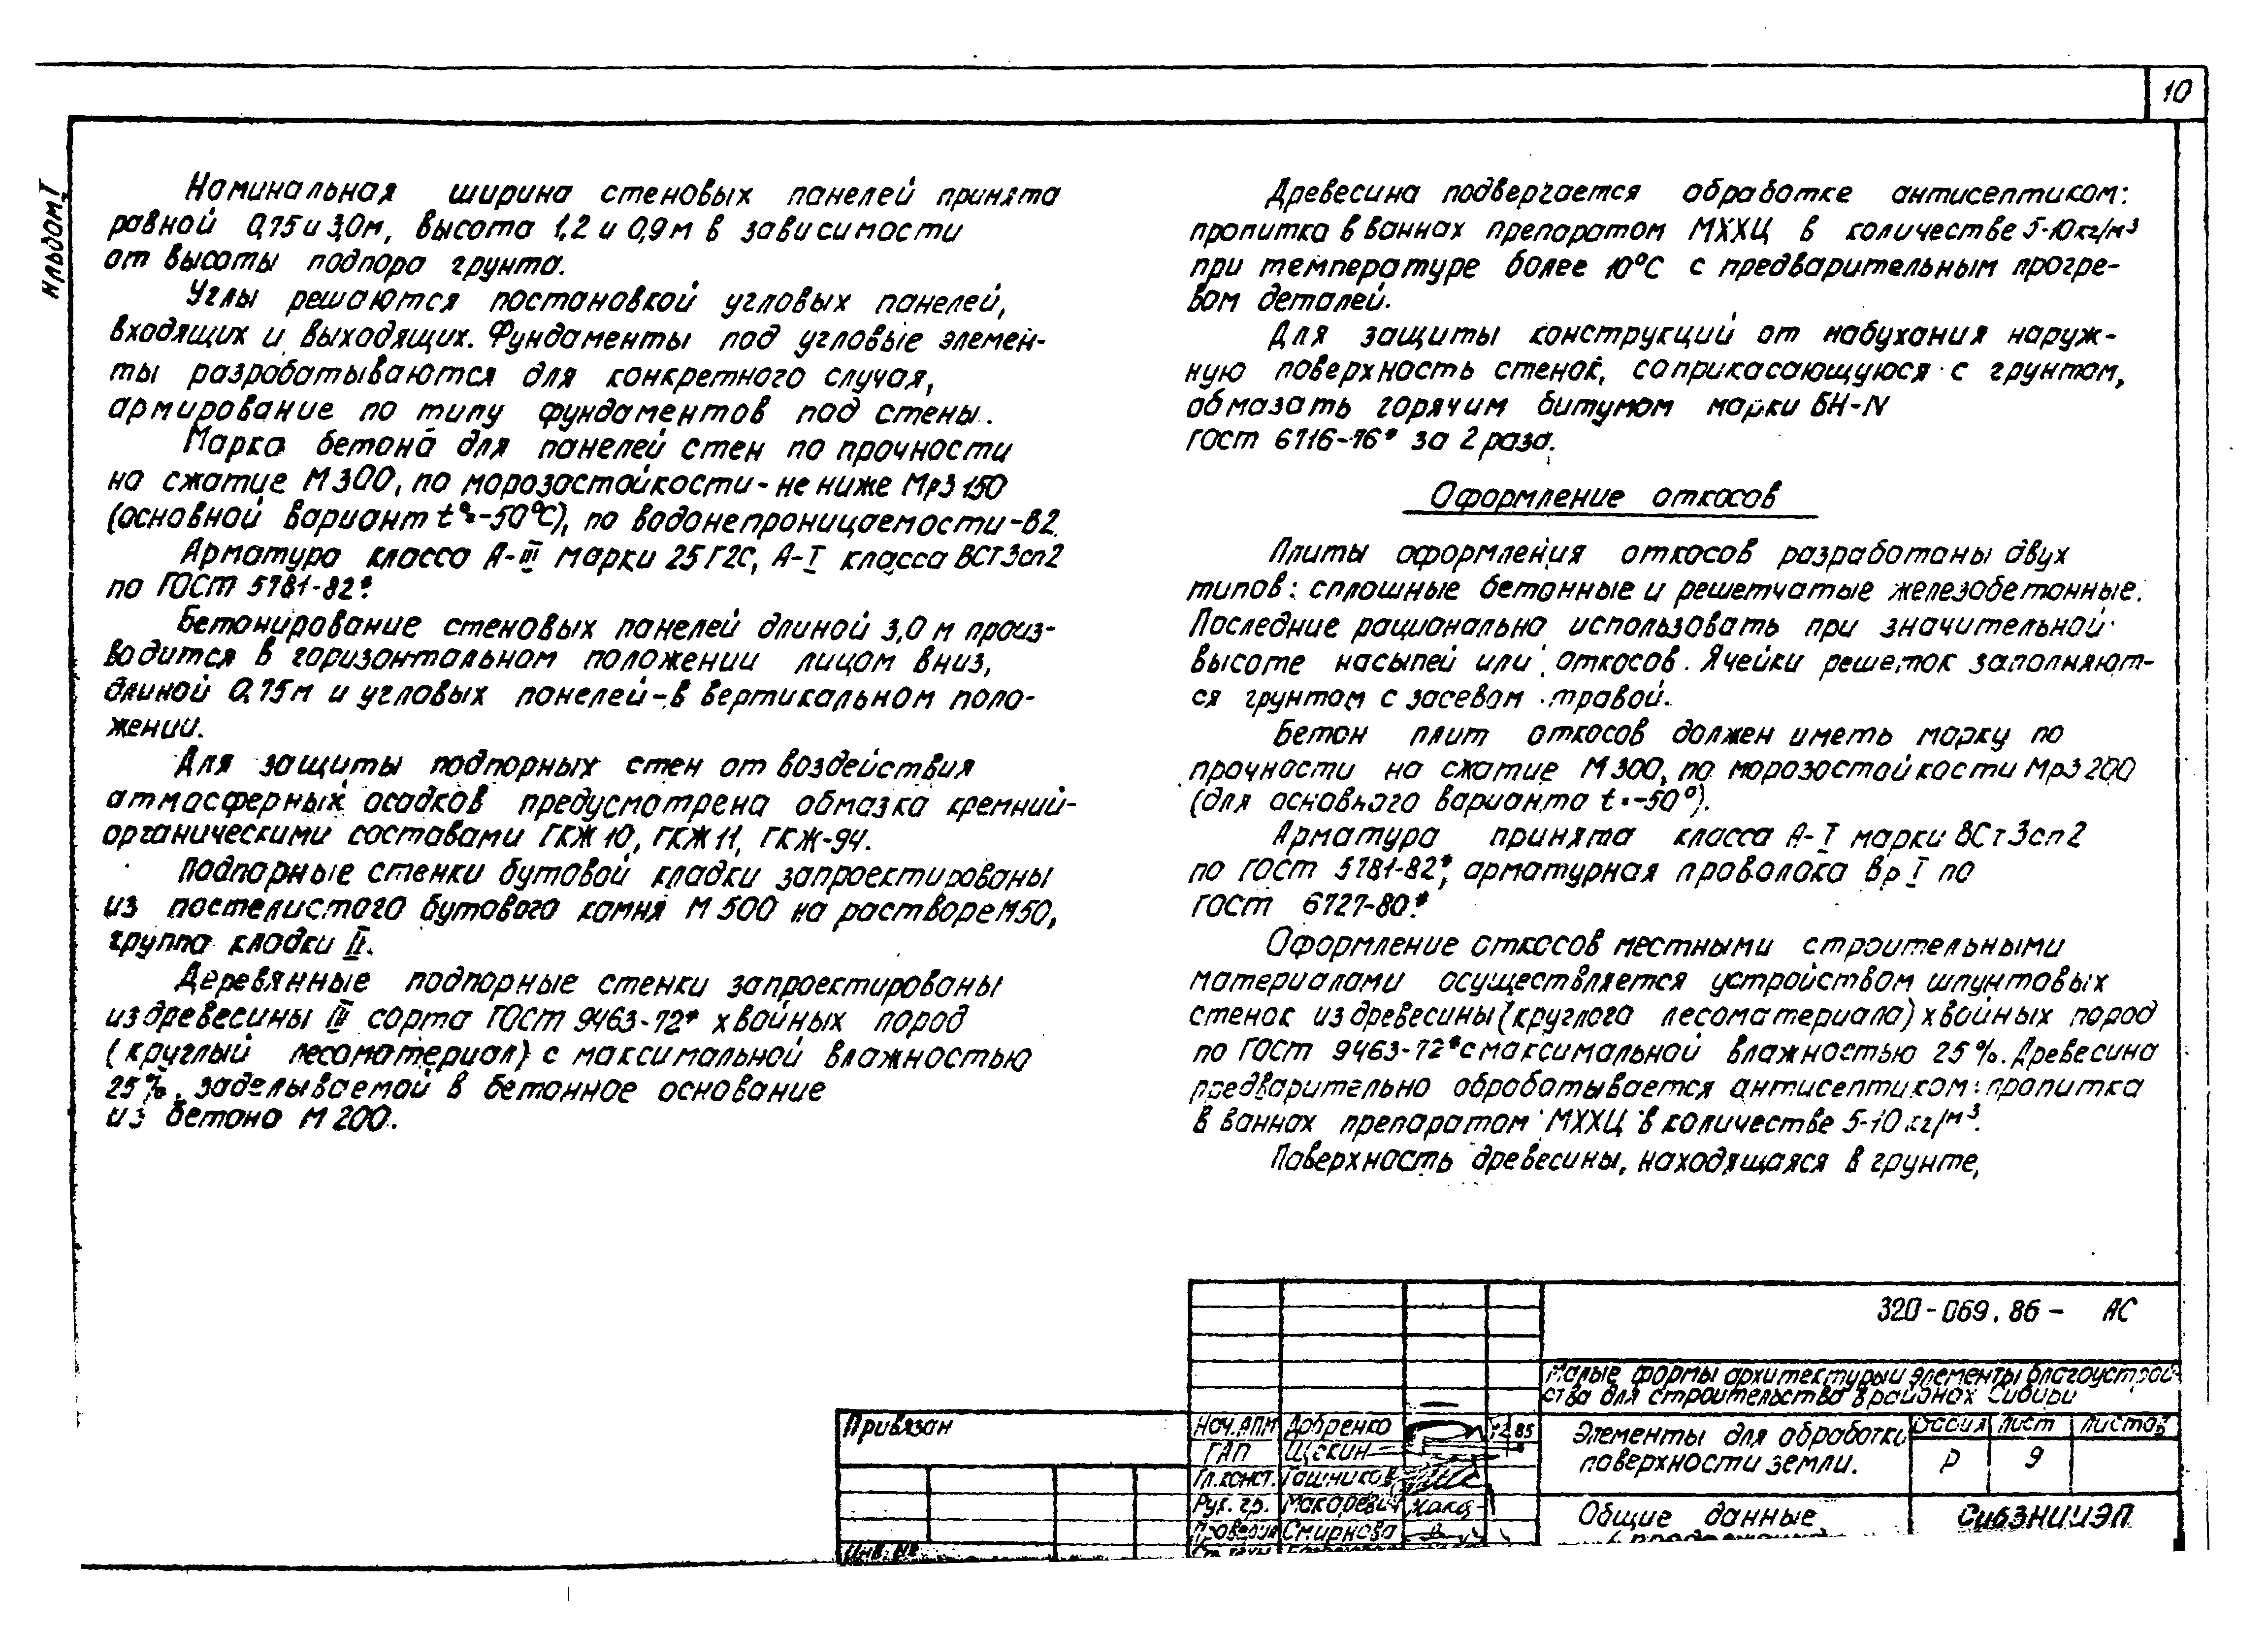 10
Альбом I
Номинальная ширина стеновых панелей принята
равной 0,75 и 3,0м, высота 1,2 и 0,9м в зависимости
от высоты подпора грунта.
Углы решаются постановкой угловых панелей,
входящих и выходящих. Фундаменты под угловые элемен-
ты разрабатываются для конкретного случая,
армирование по типу фундаментов под стены.
Марка бетона для панелей стен по прочности
на сжатие М300, по морозостойкости - не ниже Мрз 150
(основной вариант t°=-50°С), по водонепроницаемости -В2.
Арматура класса А-III марки 25Г2С, А-I класса ВСт3сп2
по ГОСТ 5781-82*.
Бетонирование стеновых панелей длиной 3,0 м произ-
водится в горизонтальном положении лицом вниз,
длиной 0,75м и угловых панелей - в вертикальном поло-
жении.
Для защиты подпорных стен от воздействия
атмосферных осадков предусмотрена обмазка кремний-
органическими составами ГКЖ 10, ГКЖ 11, ГКЖ-94.
Подпорные стенки бутовой кладки запроектированы
из постелистого бутового камня М 500 на растворе М50,
группа кладки II.
Деревянные подпорные стенки запроектированы
из древесины III сорта ГОСТ 9463-72* хвойных пород
(круглый лесоматериал) с максимальной влажностью
25%, заделываемой в бетонное основание
из бетона М 200.
Древесина подвергается обработке антисептиком:
пропитка в ваннах препаратом МХХЦ в количестве 5-10кг/м³
при температуре более 10°С с предварительным прогре-
вом деталей.
Для защиты конструкций от набухания наруж-
ную поверхность стенок, соприкасающуюся с грунтом,
обмазать горячим битумом марки БН-IV
ГОСТ 6716-76* за 2 раза.
Оформление откосов
Плиты оформления откосов разработаны двух
типов: сплошные бетонные и решетчатые железобетонные.
Последние рационально использовать при значительной
высоте насыпей или откосов. Ячейки решеток заполняют-
ся грунтом с засевом травой.
Бетон плит откосов должен иметь марку по
прочности на сжатие М300, по морозостойкости Мрз 200
(для основного варианта t=-50°).
Арматура принята класса А-I марки ВСт3сп2
по ГОСТ 5781-82*, арматурная проволока Вр I по
ГОСТ 6727-80*.
Оформление откосов местными строительными
материалами осуществляется устройством шпунтовых
стенок из древесины (круглого лесоматериала) хвойных пород
по ГОСТ 9463-72* с максимальной влажностью 25%. Древесина
предварительно обрабатывается антисептиком: пропитка
в ваннах препаратом МХХЦ в количестве 5-10 кг/м³.
Поверхность древесины, находящаяся в грунте,
320-069.86- АС
Малые формы архитектуры и элементы благоустрой-
ства для строительства в районах Сибири
Привязан
Нач. АПМ Добренко 12.85
ГАП Щекин
Гл. конст. Гашников
Рук. гр. Макаревич
Проверил Смирнова
Инв. №
Элементы для обработки
поверхности земли.
Стадия Лист Листов
Р 9
Общие данные
СибЗНИИЭП